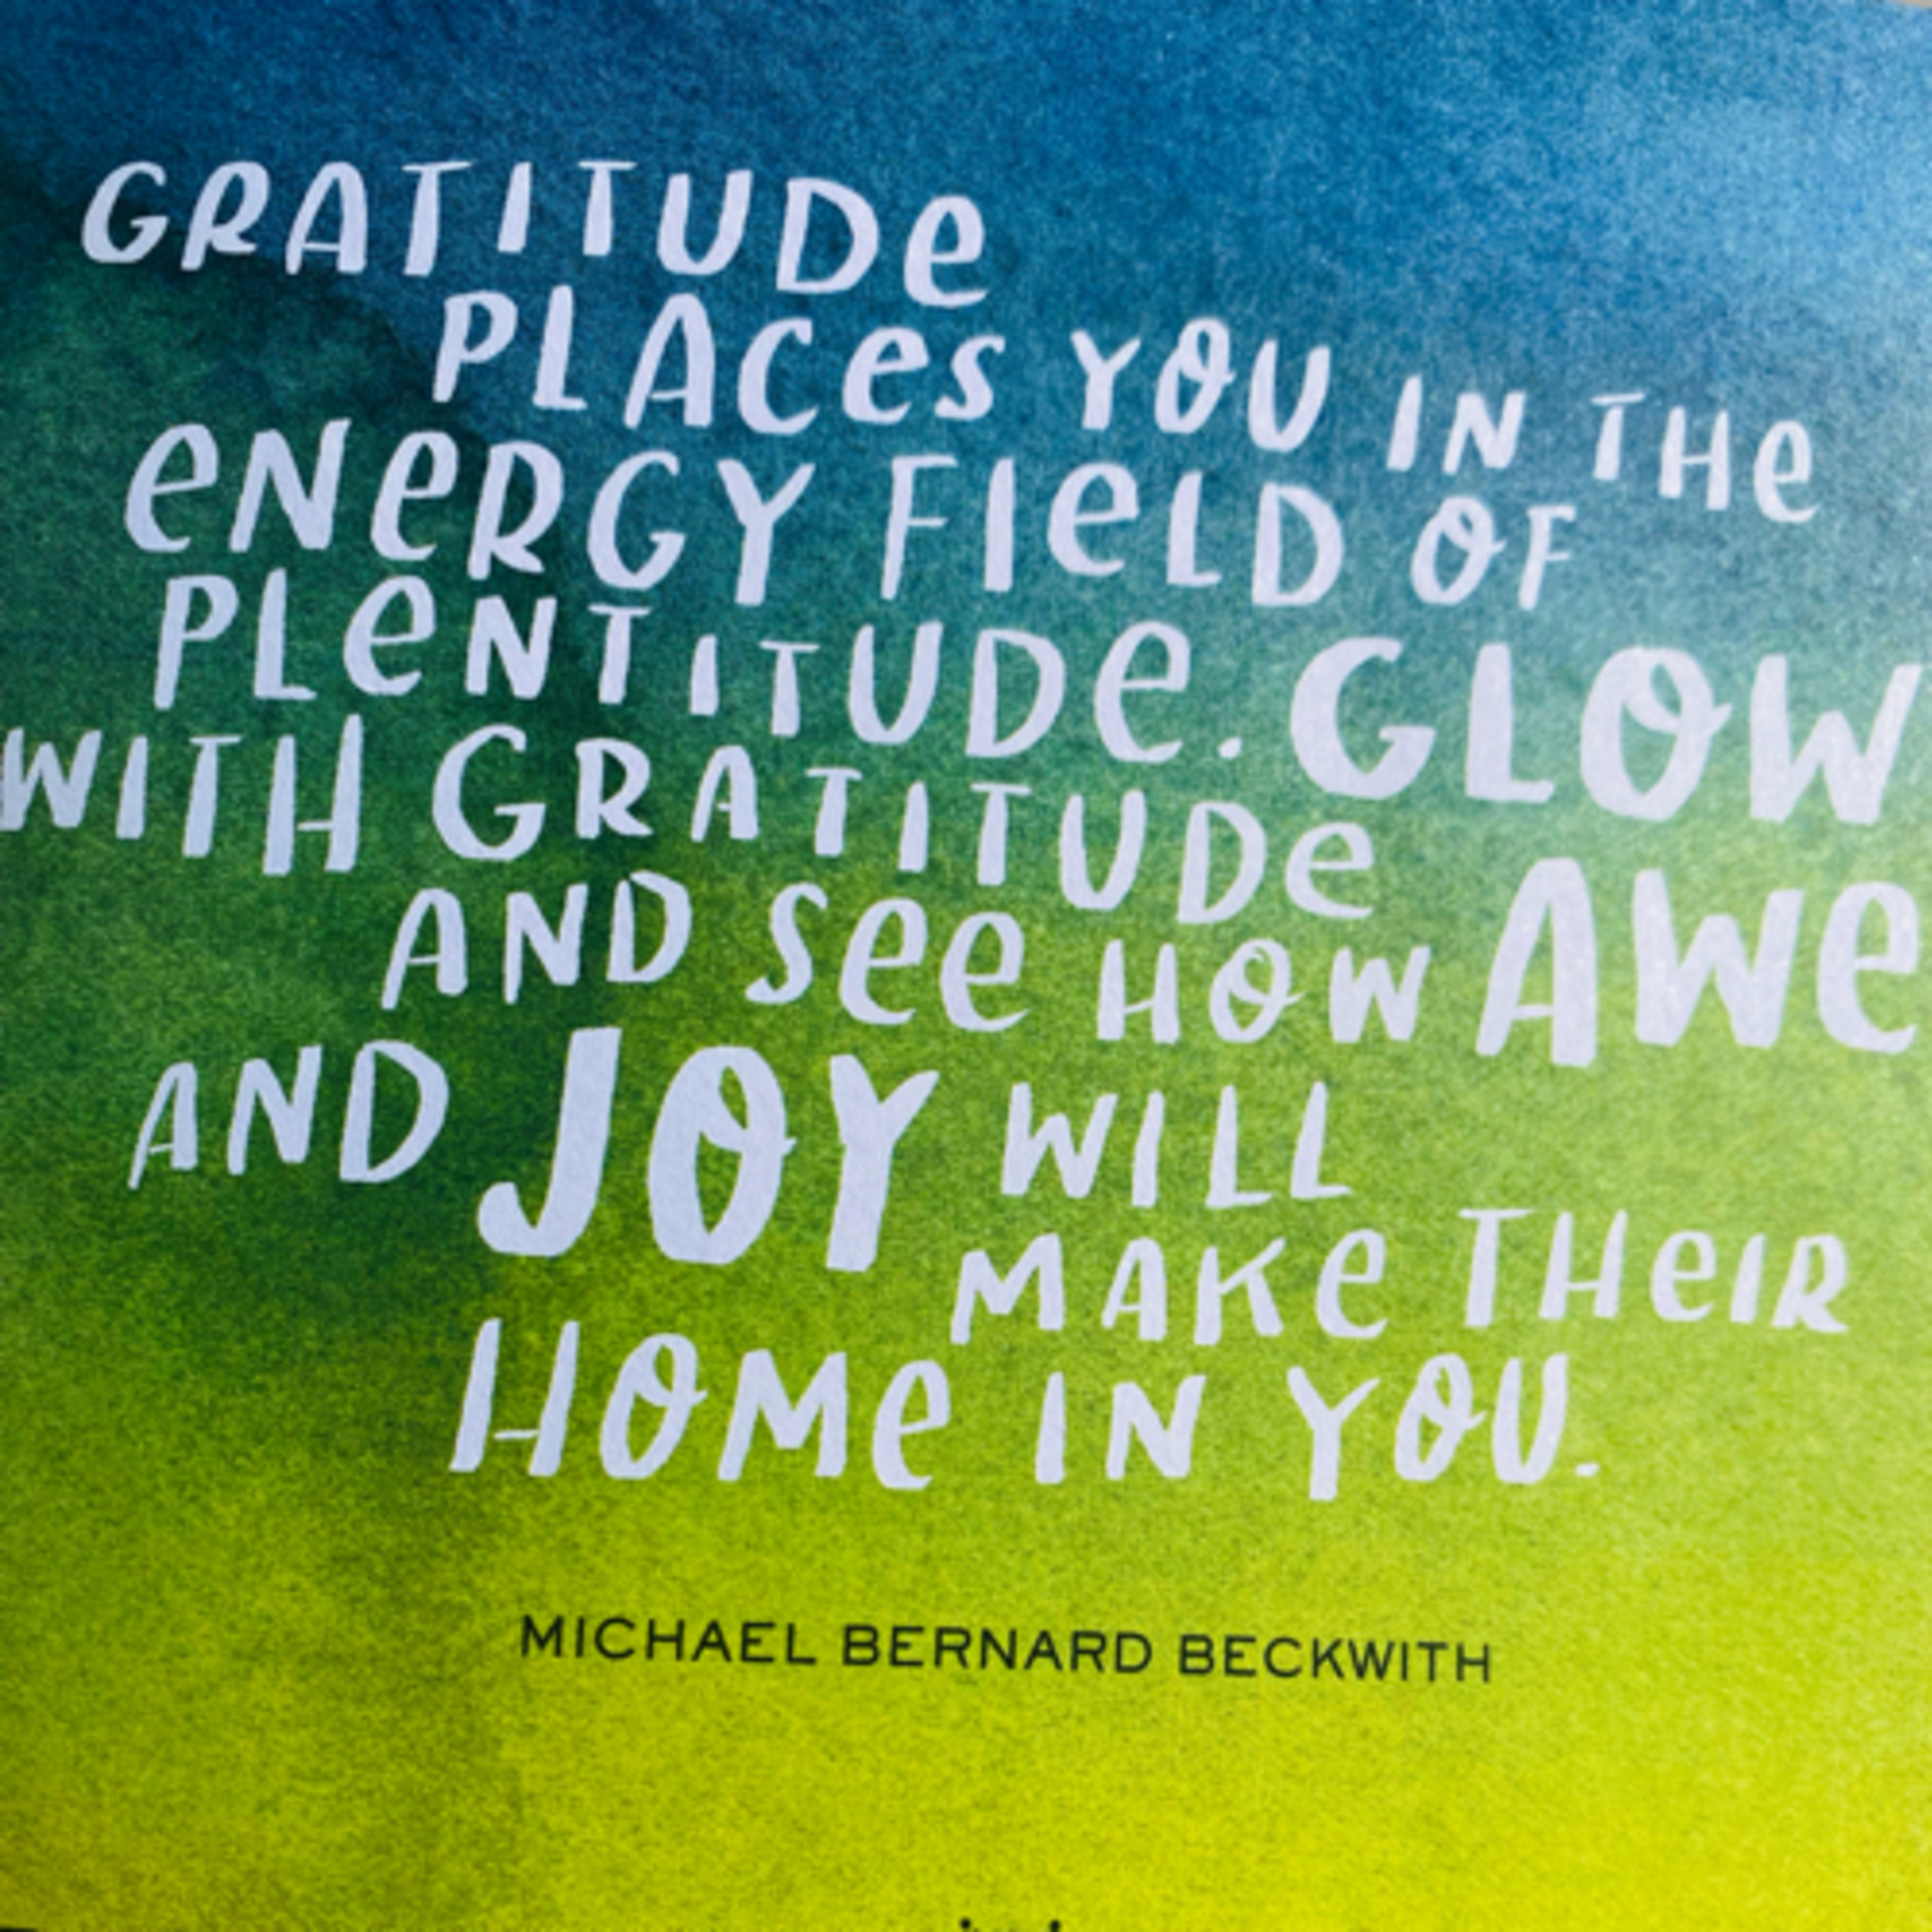 GRATITUDe
PLACes YOU IN THe
eNeRGY FIeLD OF
PLeNTITUDe. GLOW
WITH GRATITUDe
AND See HOW AWe
AND JOY WILL
MAKe THeIR
HOMe IN YOU.
MICHAEL BERNARD BECKWITH